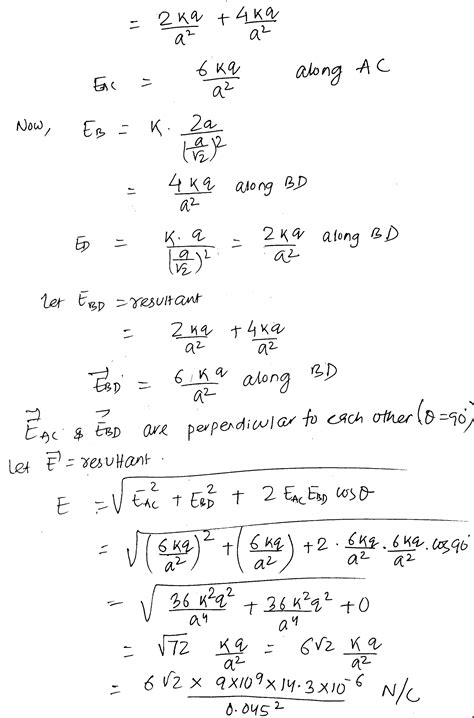 = 2kq/a² + 4kq/a²
E_AC = 6kq/a² along AC
Now, E_B = K · 2a/(a/√2)²
= 4kq/a² along BD
E_D = K·q/(a/√2)² = 2kq/a² along BD
Let E_BD = resultant
= 2kq/a² + 4kq/a²
E⃗_BD = 6kq/a² along BD
E⃗_AC & E⃗_BD are perpendicular to each other (θ=90°)
Let E⃗ = resultant.
E = √(E_AC² + E_BD² + 2 E_AC E_BD cosθ)
= √((6kq/a²)² + (6kq/a²) + 2 · 6kq/a² · 6kq/a² · cos90°)
= √(36k²q²/a⁴ + 36k²q²/a⁴ + 0)
= √72 kq/a² = 6√2 kq/a²
= 6√2 × 9×10⁹ × 14.3×10⁻⁶/0.045² N/C